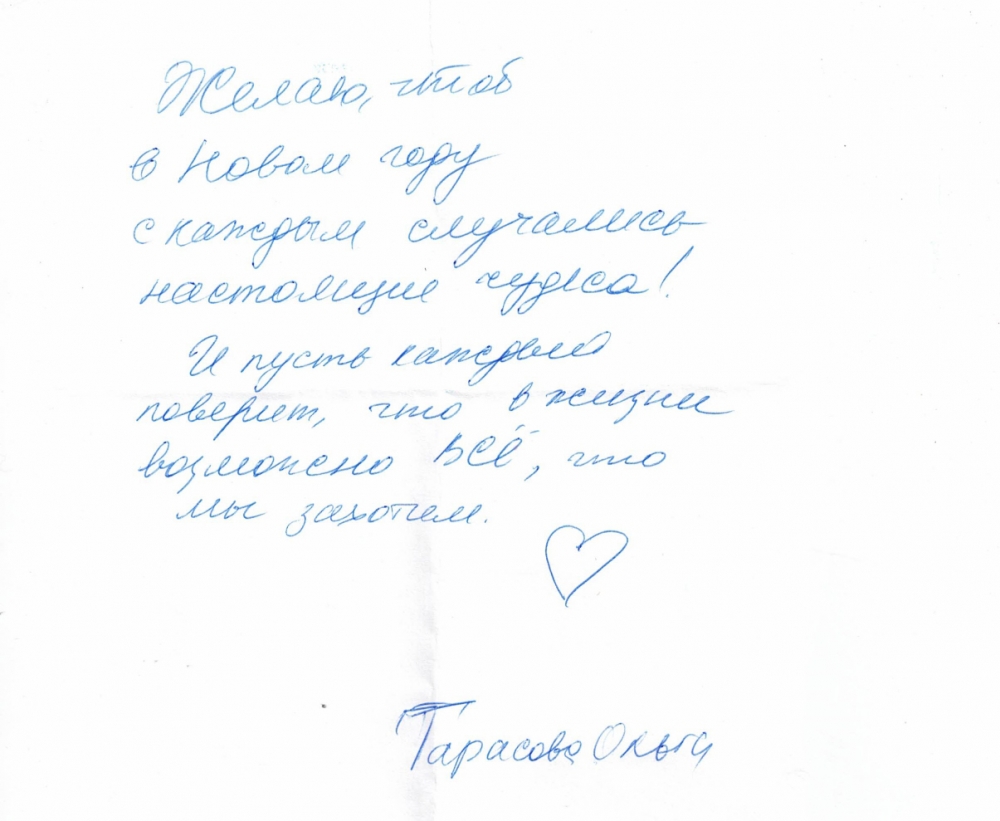 Желаю, чтоб
в Новом году
с каждым случались
настоящие чудеса!
И пусть каждый
поверит, что в жизни
возможно ВСЁ, что
мы захотим.
Тарасова Ольга